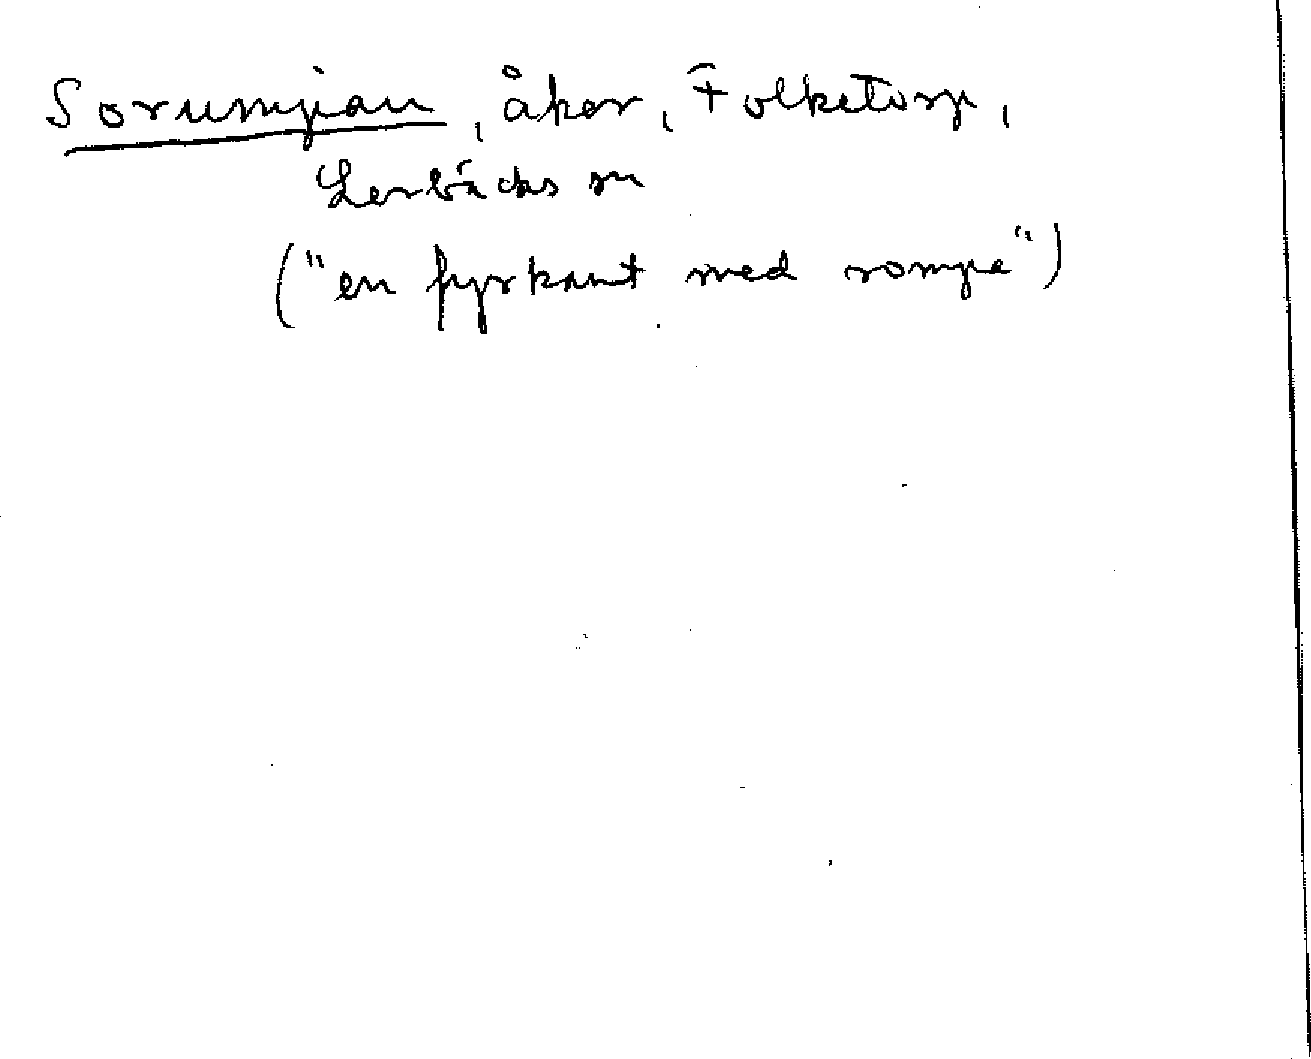 Sorumpian, åker, Folketorp,
Lerbäcks sn
("en fyrkant med rompa")